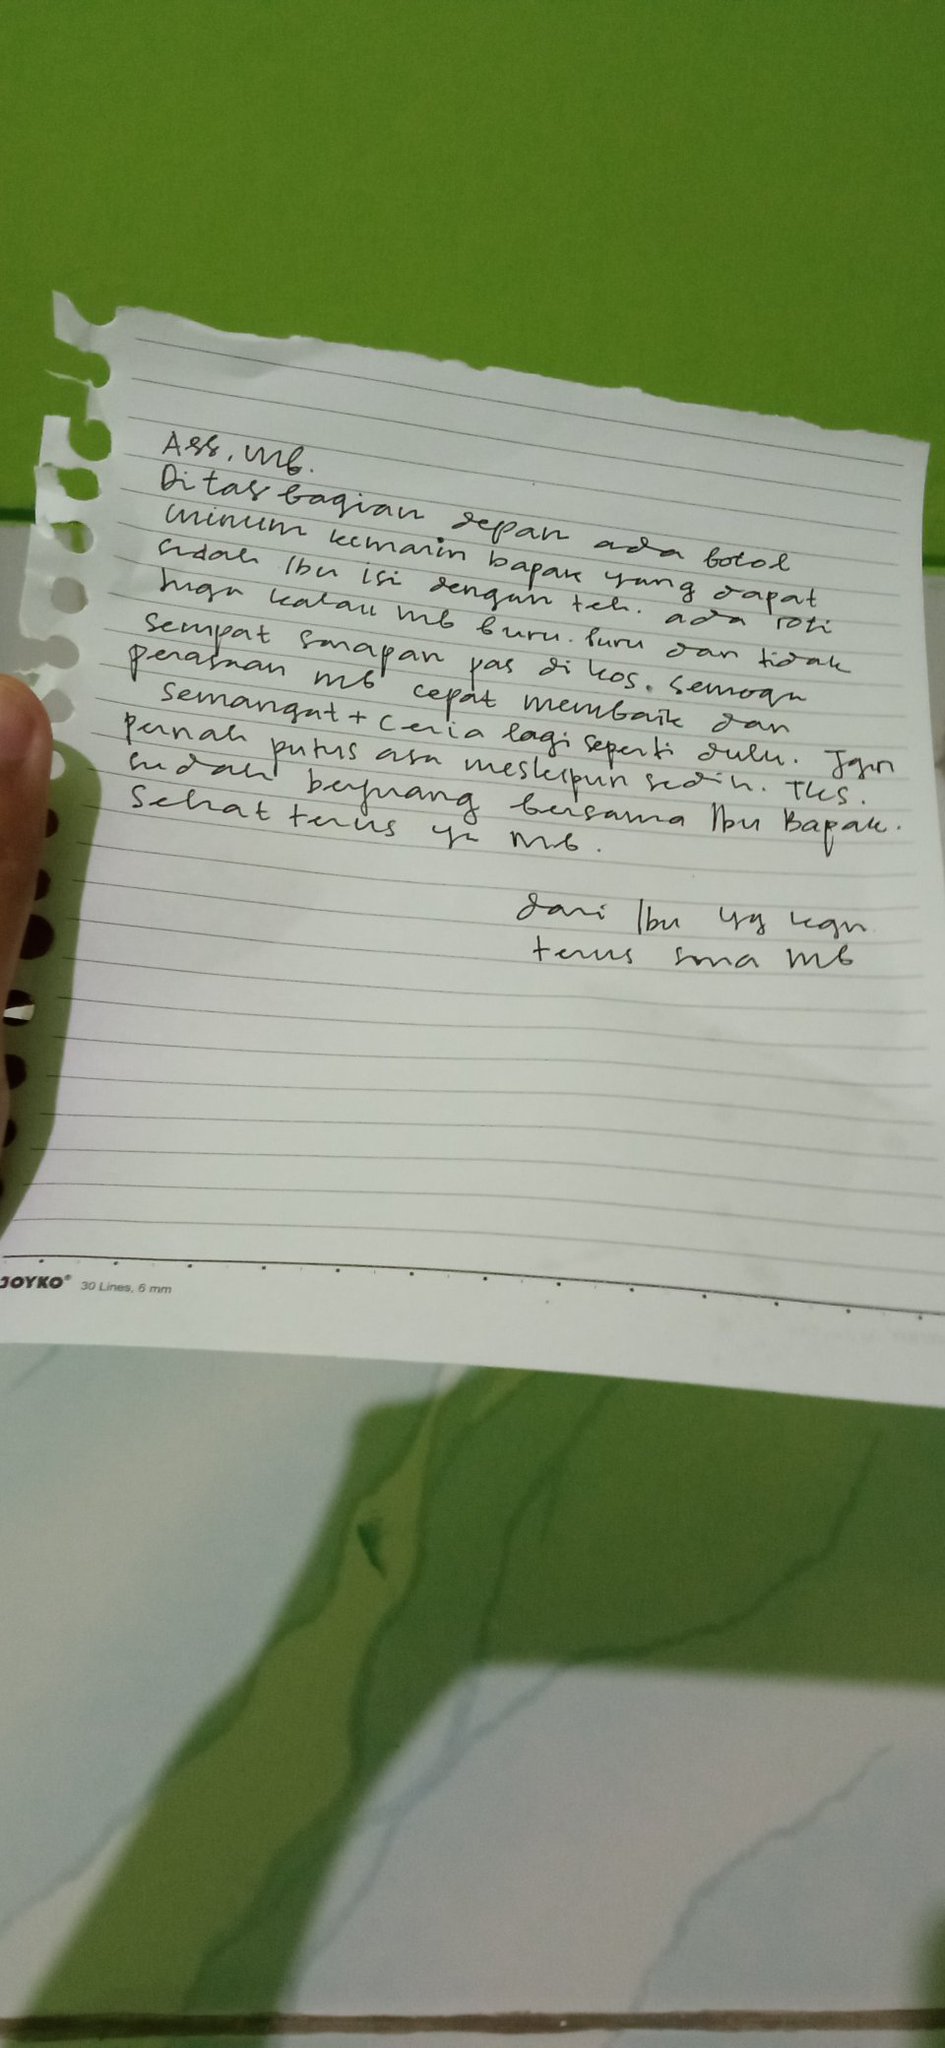 Ass. Mb.
Di tas bagian depan ada botol
minum kemarin bapak yang dapat
sudah Ibu isi dengan teh. ada roti
juga kalau mb buru-buru dan tidak
sempat sarapan pas di kos. semoga
perasaan mb cepat membaik dan
semangat + ceria lagi seperti dulu. Jgn
pernah putus asa meskipun sedih. Tks.
sudah berjuang bersama Ibu Bapak.
Sehat terus ya mb.
dari Ibu yg kgn
terus sma mb
JOYKO® 30 Lines, 6 mm